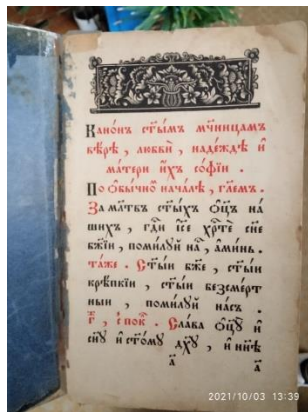 Канѡ́нъ ст҃ы́мъ мч҃ницамъ
вѣ́рѣ , любви̏ , надеждѣ и҆
ма́тери и҆́хъ соѳі́и .
По ѻ҆бы́чнѡ нача́лѣ , гл҃емъ .
За мл҃твъ ст҃ы́хъ ѻ҆ц҃ъ на́
шихъ , гд҃и і҆с҃е хрт҃е сн҃е
бж҃їи , поми́лꙋй на́ , а҆ми́нь .
та́же . Ст҃ы́и бж҃е , ст҃ы́и
крѣ́пкїи , ст҃ы́и безсме́рт
ныи , поми́лꙋй на́съ .
г҃ , с̾ покло̑ . Сла́ва ѻ҆ц҃ꙋ̀ и҆
сн҃ꙋ и҆ ст҃о́мꙋ дх҃ꙋ , и҆ нн҃ѣ
а҃ а҃
2021/10/03 13:39